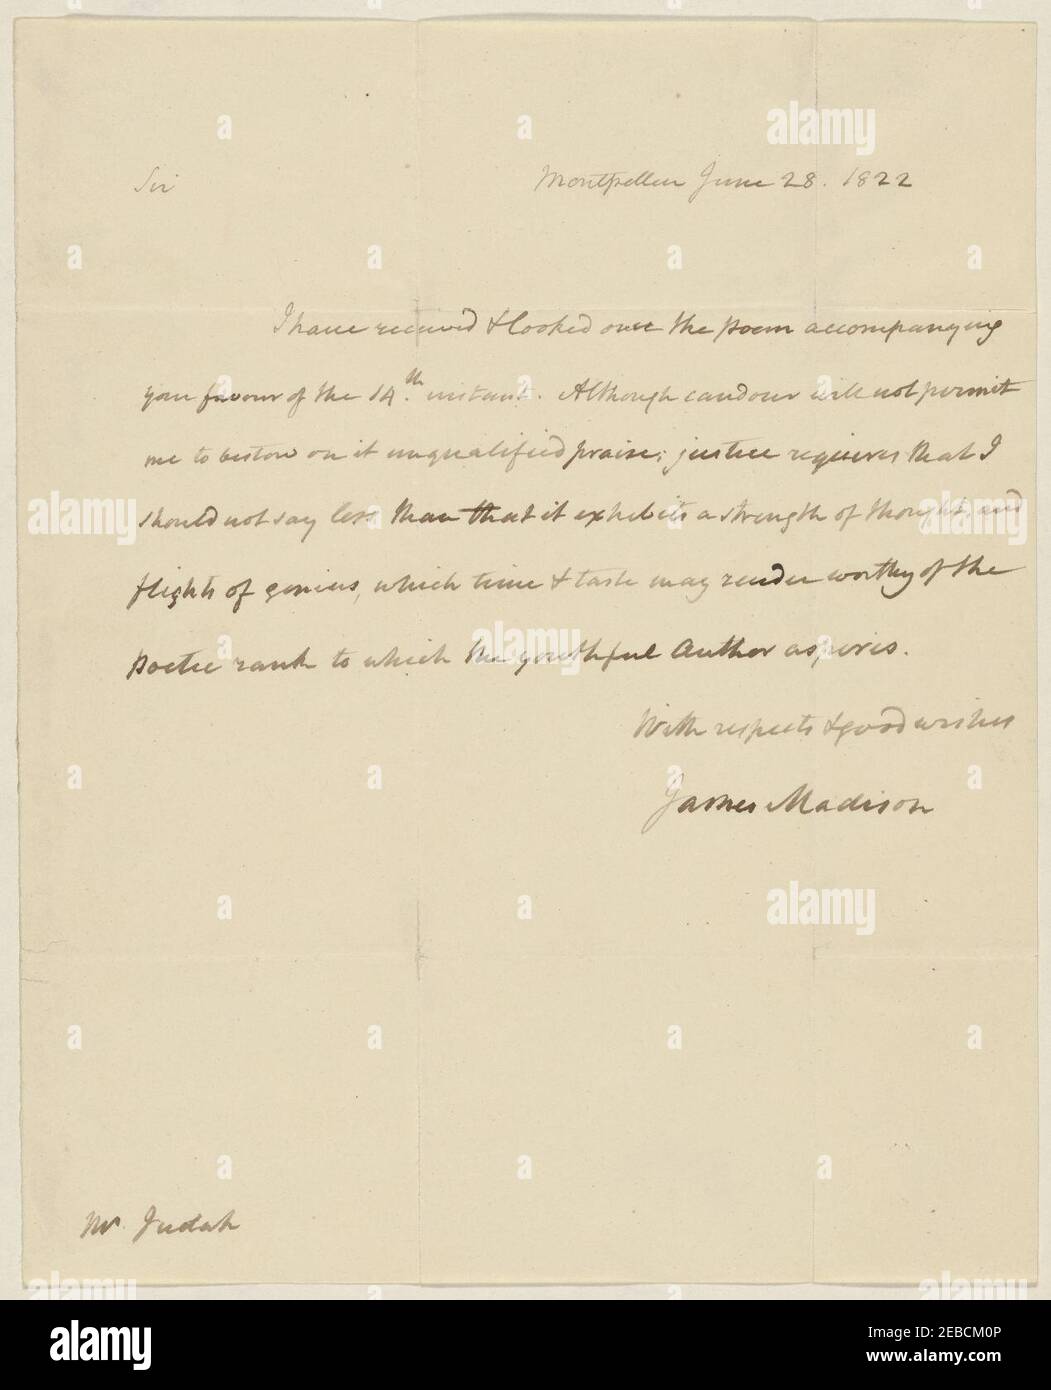 Sir Montpellier June 28. 1822
I have received & looked over the poem accompanying
your favour of the 14th. instant. Although candour will not permit
me to bestow on it unqualified praise; justice requires that I
should not say less than that it exhibits a strength of thought, and
flights of genius, which time & taste may render worthy of the
poetic rank to which the youthful Author aspires.
With respects & good wishes
James Madison
Mr. Judah
alamy
Image ID: 2EBCM0P
www.alamy.com